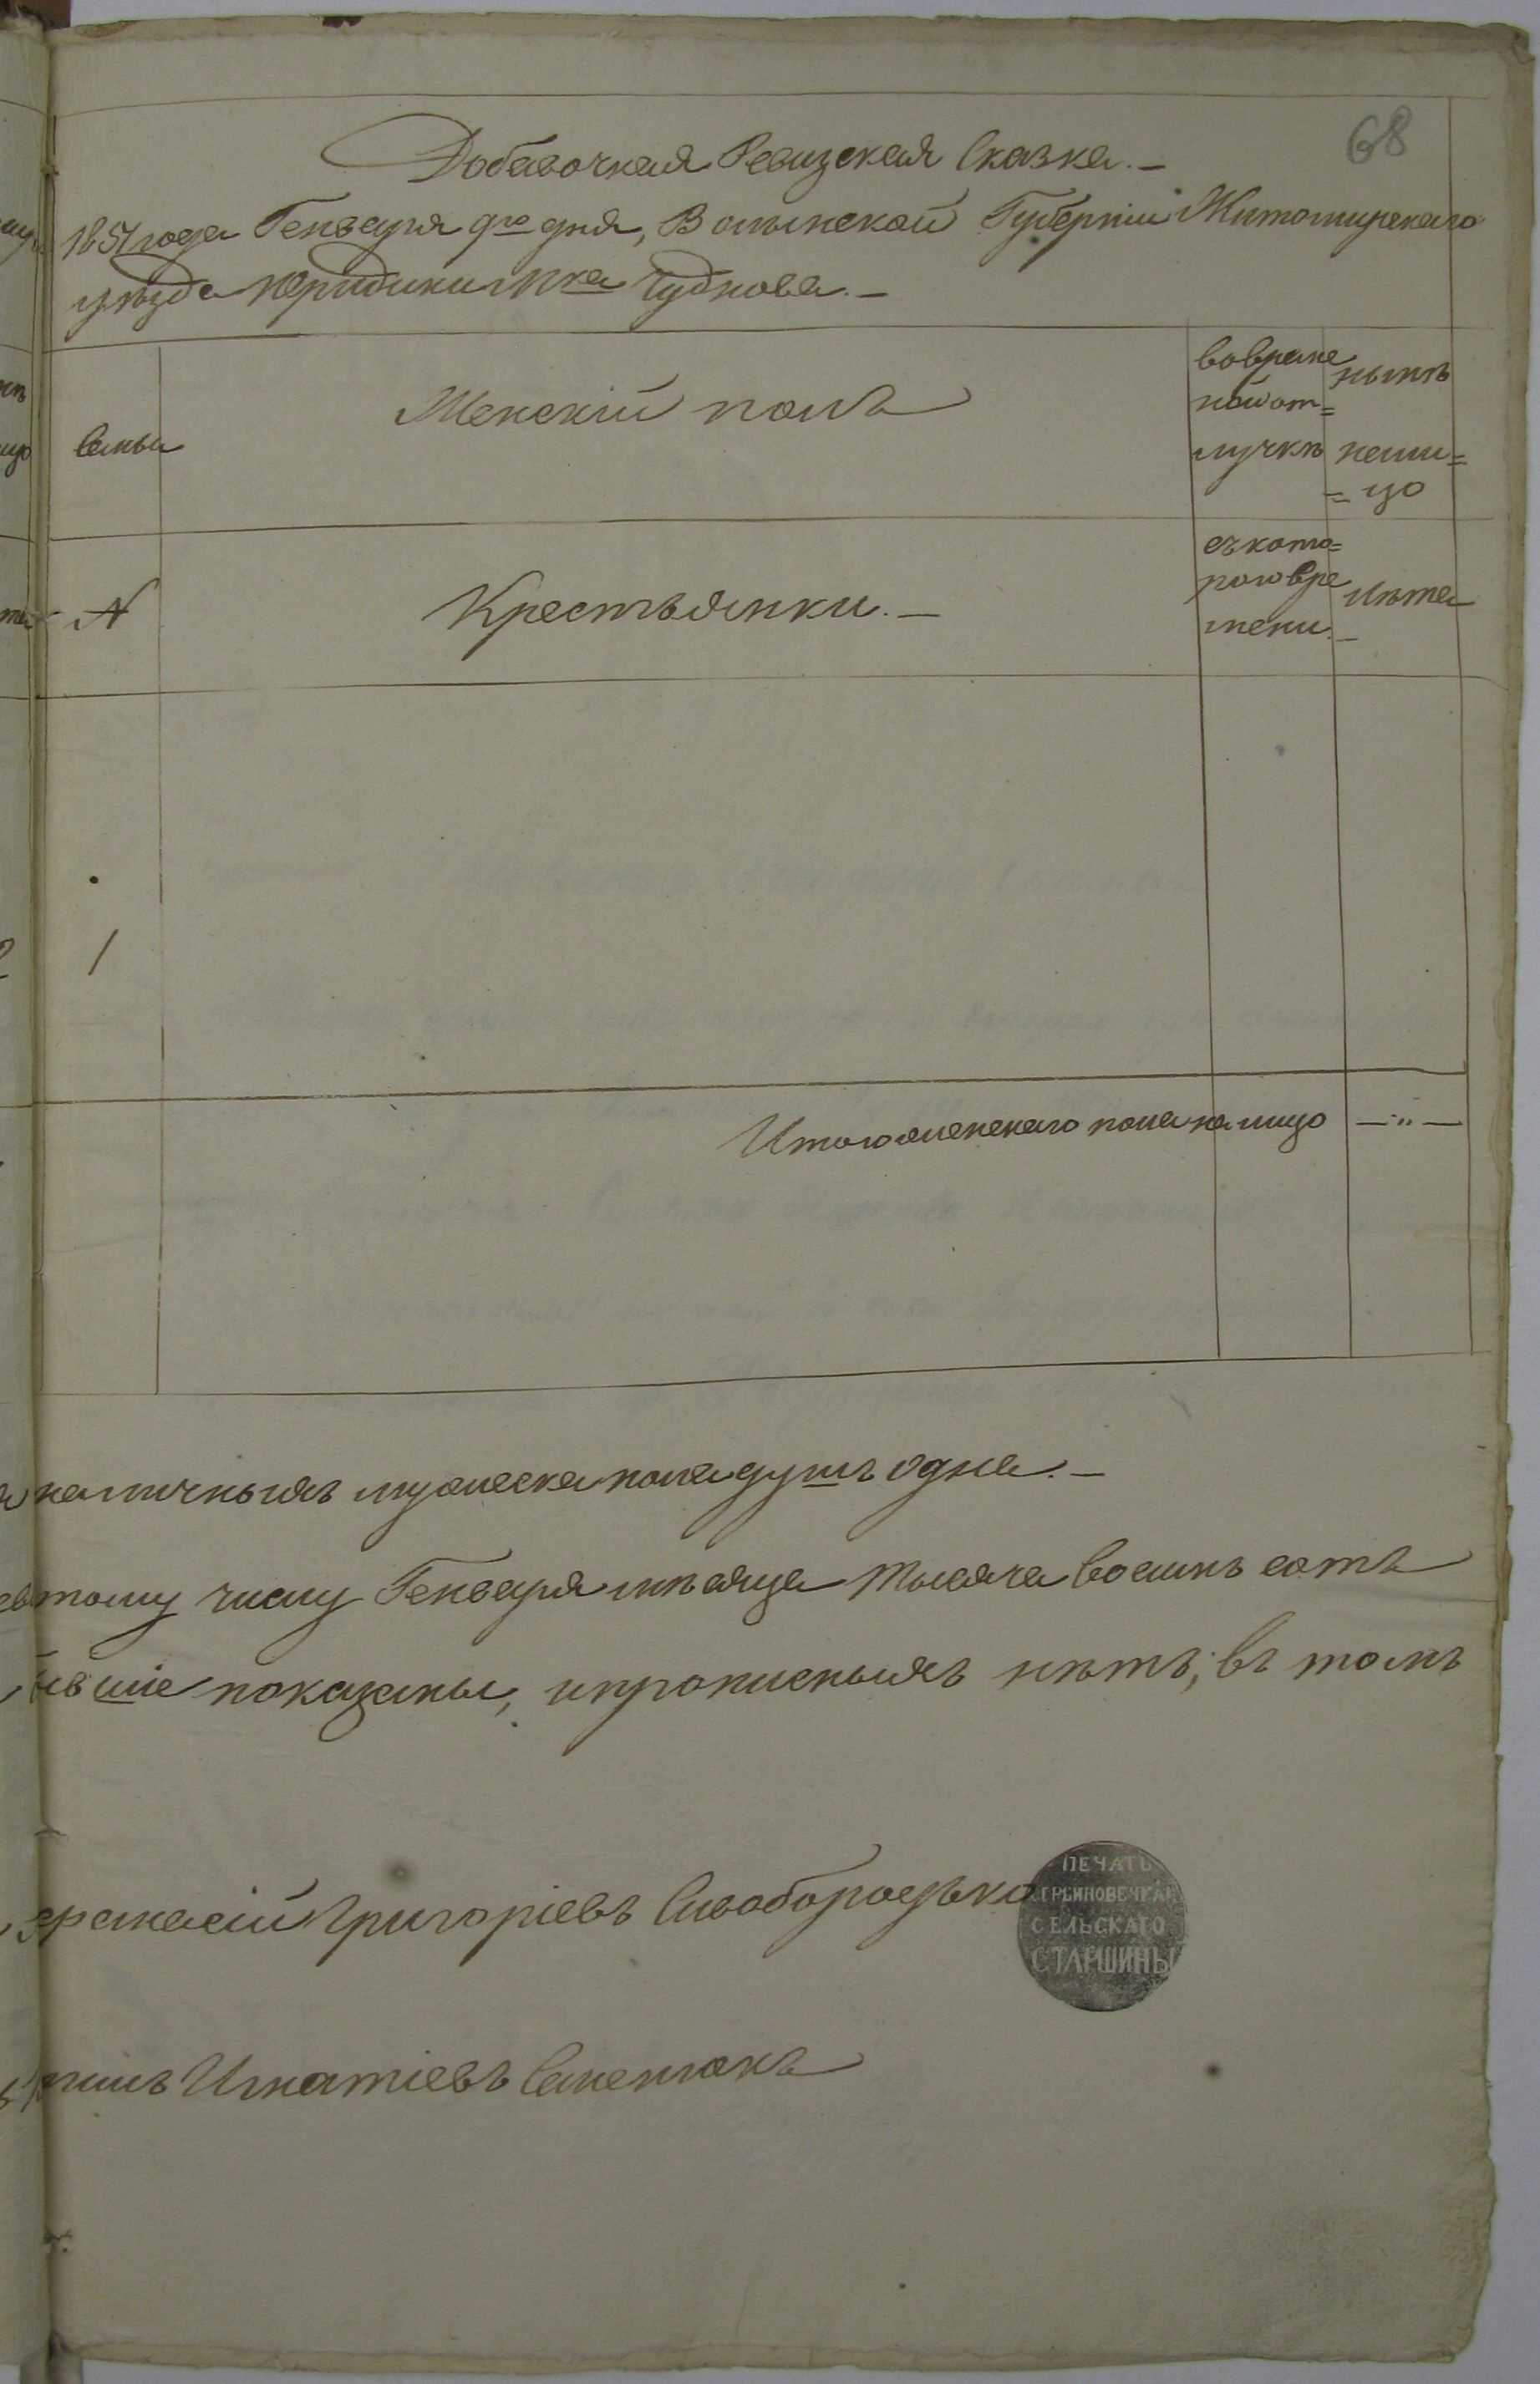 68
Добавочная Ревизская Сказка.—
1851 года Генваря 9го дня, Волынской Губерніи Житомирскаго
уѣзда Юридики Мка Чуднова.—
Семьи
Женскій полъ
во време
ной от=
лучкѣ
нынѣ
нали=
=цо
N
Крестьянки.—
съ кото=
раго вре
мени.—
лѣта
1
Итого женскаго пола на лицо —"—
наличныхъ мужеска пола душъ одна.—
тому числу Генваря мѣсяца тысяча восемь сотъ
вшіе показаны, и прописныхъ нѣтъ; въ томъ
Григоріевъ Сивобородько
ПЕЧАТЬ
СЕЛЬСКАГО
СТАРШИНЫ
Игнатіевъ Семенюкъ